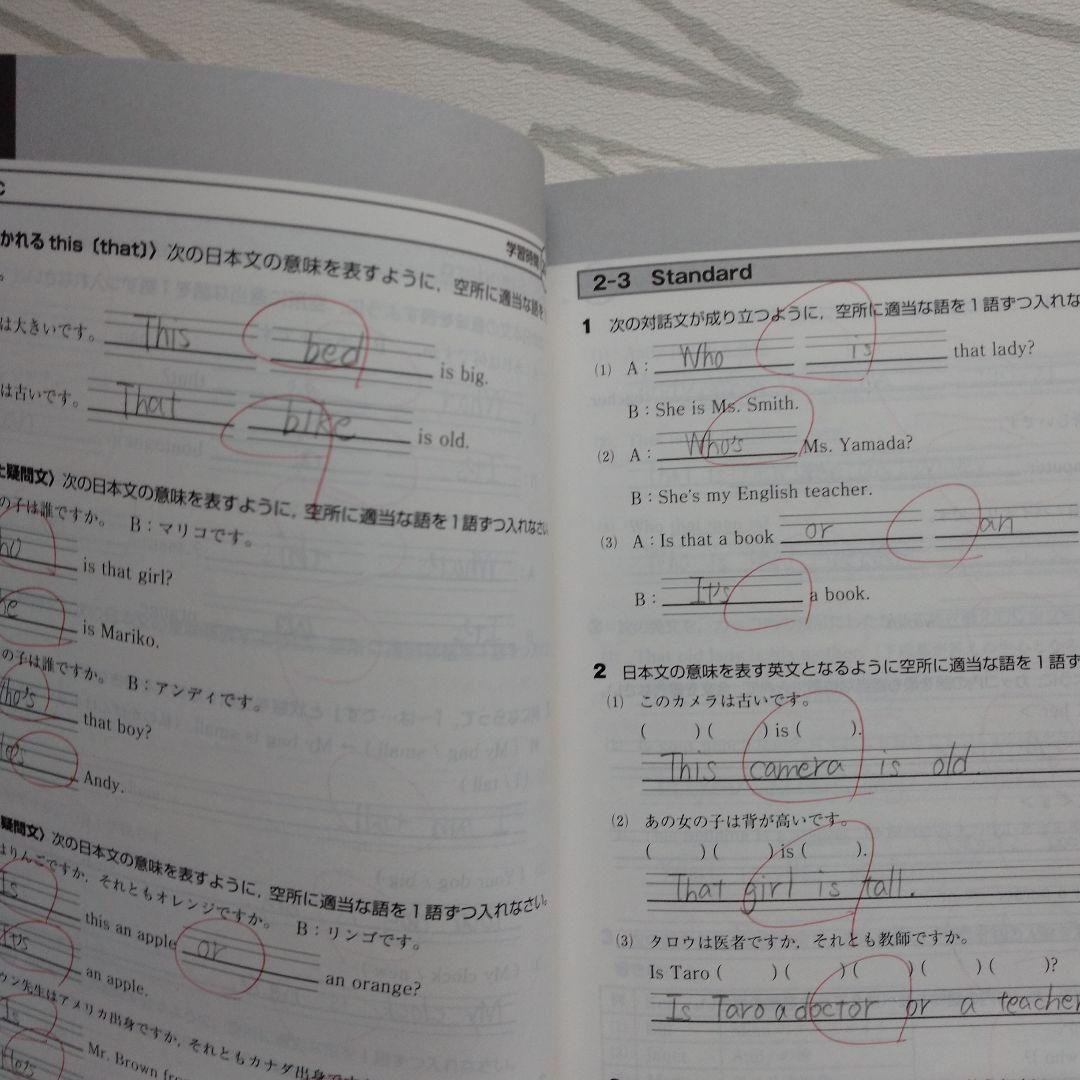 C
学習時間
かれる this〔that〕〉次の日本文の意味を表すように，空所に適当な語を
は大きいです。 This bed is big.
は古いです。 That bike is old.
疑問文〉次の日本文の意味を表すように，空所に適当な語を1語ずつ入れなさい
の子は誰ですか。 B：マリコです。
is that girl?
is Mariko.
の子は誰ですか。 B：アンディです。
Who's that boy?
Andy.
疑問文〉次の日本文の意味を表すように，空所に適当な語を1語ずつ入れなさい。
はりんごですか，それともオレンジですか。 B：リンゴです。
Is this an apple or an orange?
It's an apple.
ウン先生はアメリカ出身ですか，それともカナダ出身ですか
Is Mr. Brown
He's
2-3 Standard
1 次の対話文が成り立つように，空所に適当な語を1語ずつ入れな
(1) A： Who is that lady?
B：She is Ms. Smith.
(2) A： Who's Ms. Yamada?
B：She's my English teacher.
(3) A：Is that a book or an
B： It's a book.
2 日本文の意味を表す英文となるように空所に適当な語を1語ず
(1) このカメラは古いです。
( )( ) is ( ).
This camera is old.
(2) あの女の子は背が高いです。
( )( ) is ( ).
That girl is tall.
(3) タロウは医者ですか，それとも教師ですか。
Is Taro ( )( )( )( )( )?
Is Taro a doctor or a teacher